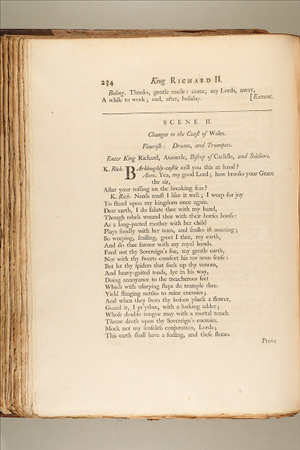 234 King RICHARD II.
Boling. Thanks, gentle uncle: come, my Lords, away,
A while to work; and, after, holiday. [Exeunt.
SCENE II.
Changes to the Coast of Wales.
Flourish: Drums, and Trumpets.
Enter King Richard, Aumerle, Bishop of Carlisle, and Soldiers.
K. Rich. Barkloughly-castle call you this at hand?
Aum. Yea, my good Lord; how brooks your Grace
the air,
After your tossing on the breaking seas?
K. Rich. Needs must I like it well; I weep for joy
To stand upon my kingdom once again.
Dear earth, I do salute thee with my hand,
Though rebels wound thee with their horses hoofs:
As a long-parted mother with her child
Plays fondly with her tears, and smiles in meeting;
So weeping, smiling, greet I thee, my earth,
And do thee favour with my royal hands.
Feed not thy Sovereign's foe, my gentle earth,
Nor with thy sweets comfort his rav'nous sense:
But let thy spiders that suck up thy venom,
And heavy-gaited toads, lye in his way,
Doing annoyance to the treach'rous feet
Which with usurping steps do trample thee.
Yield stinging nettles to mine enemies;
And when they from thy bosom pluck a flower,
Guard it, I pr'ythee, with a lurking adder;
Whose double tongue may with a mortal touch
Throw death upon thy Sovereign's enemies.
Mock not my senseless conjuration, Lords;
This earth shall have a feeling, and these stones
Prove